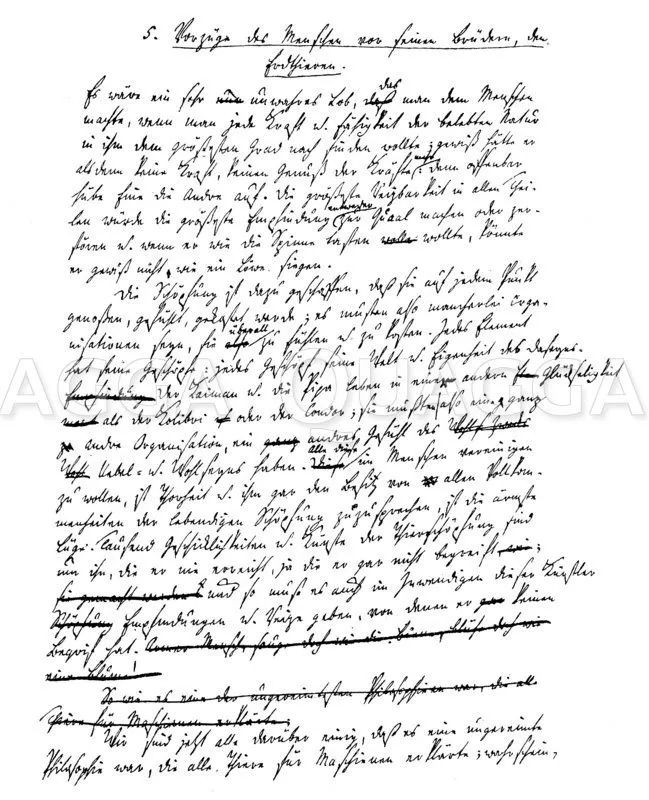 5. Vorzüge des Menschen vor seinen Brüdern, den
Erdthieren.
Es wäre ein sehr unwahres Lob, das man dem Menschen
machte, wenn man jede Kraft u. Fähigkeit der belebten Natur
in ihm dem größesten Grad nach finden wollte; gewiß hätte er
alsdenn keine Kraft, keinen Genuß der Kräfte mehr: denn offenbar
hübe Eine die Andre auf. Die größeste Reizbarkeit in allen Thei-
len würde die größeste Empfindung entweder zur Quaal machen oder zer-
stören u. wenn er wie die Spinne tasten wollte, könnte
er gewiß nicht, wie ein Löwe siegen.
Die Schöpfung ist dazu geschaffen, daß sie auf jedem Punkt
genoßen, gefühlt, gekostet werde; es mußten also mancherlei Orga-
nisationen seyn, sie überall zu fühlen u. zu kosten. Jedes Element
hat seine Geschöpfe: jedes Geschöpf seine Welt u. Eigenheit des Daseyns.
Empfindung Der Kaiman u. die Pipa leben in einer andern Glückseligkeit
als der Kolibri oder der Condor; sie mußten also eine ganz
andre Organisation, ein ganz andres Gefühl des
Uebel- u. Wohlseyns haben. Alle diese im Menschen vereinigen
zu wollen, ist Thorheit u. ihm gar den Besitz von allen Vollkom-
menheiten der lebendigen Schöpfung zuzusprechen, ist die ärmste
Lüge. Tausend Geschicklichkeiten u. Künste der Thierschöpfung sind
um ihn, die er nie erreicht, ja die er gar nicht begreift
und so muß es auch im Inwendigen dieser Künstler
Schöpfung Empfindungen u. Reize geben, von denen er gar keinen
Begrif hat.
eine Blume!
So wie es eine der ungereimtesten Philosophieen war, die alle
Thiere für Maschienen erklärte;
Wir sind jetzt alle darüber einig, daß es eine ungereimte
Philosophie war, die alle Thiere für Maschienen erklärte; wahrschein-
AKG QUAGGA